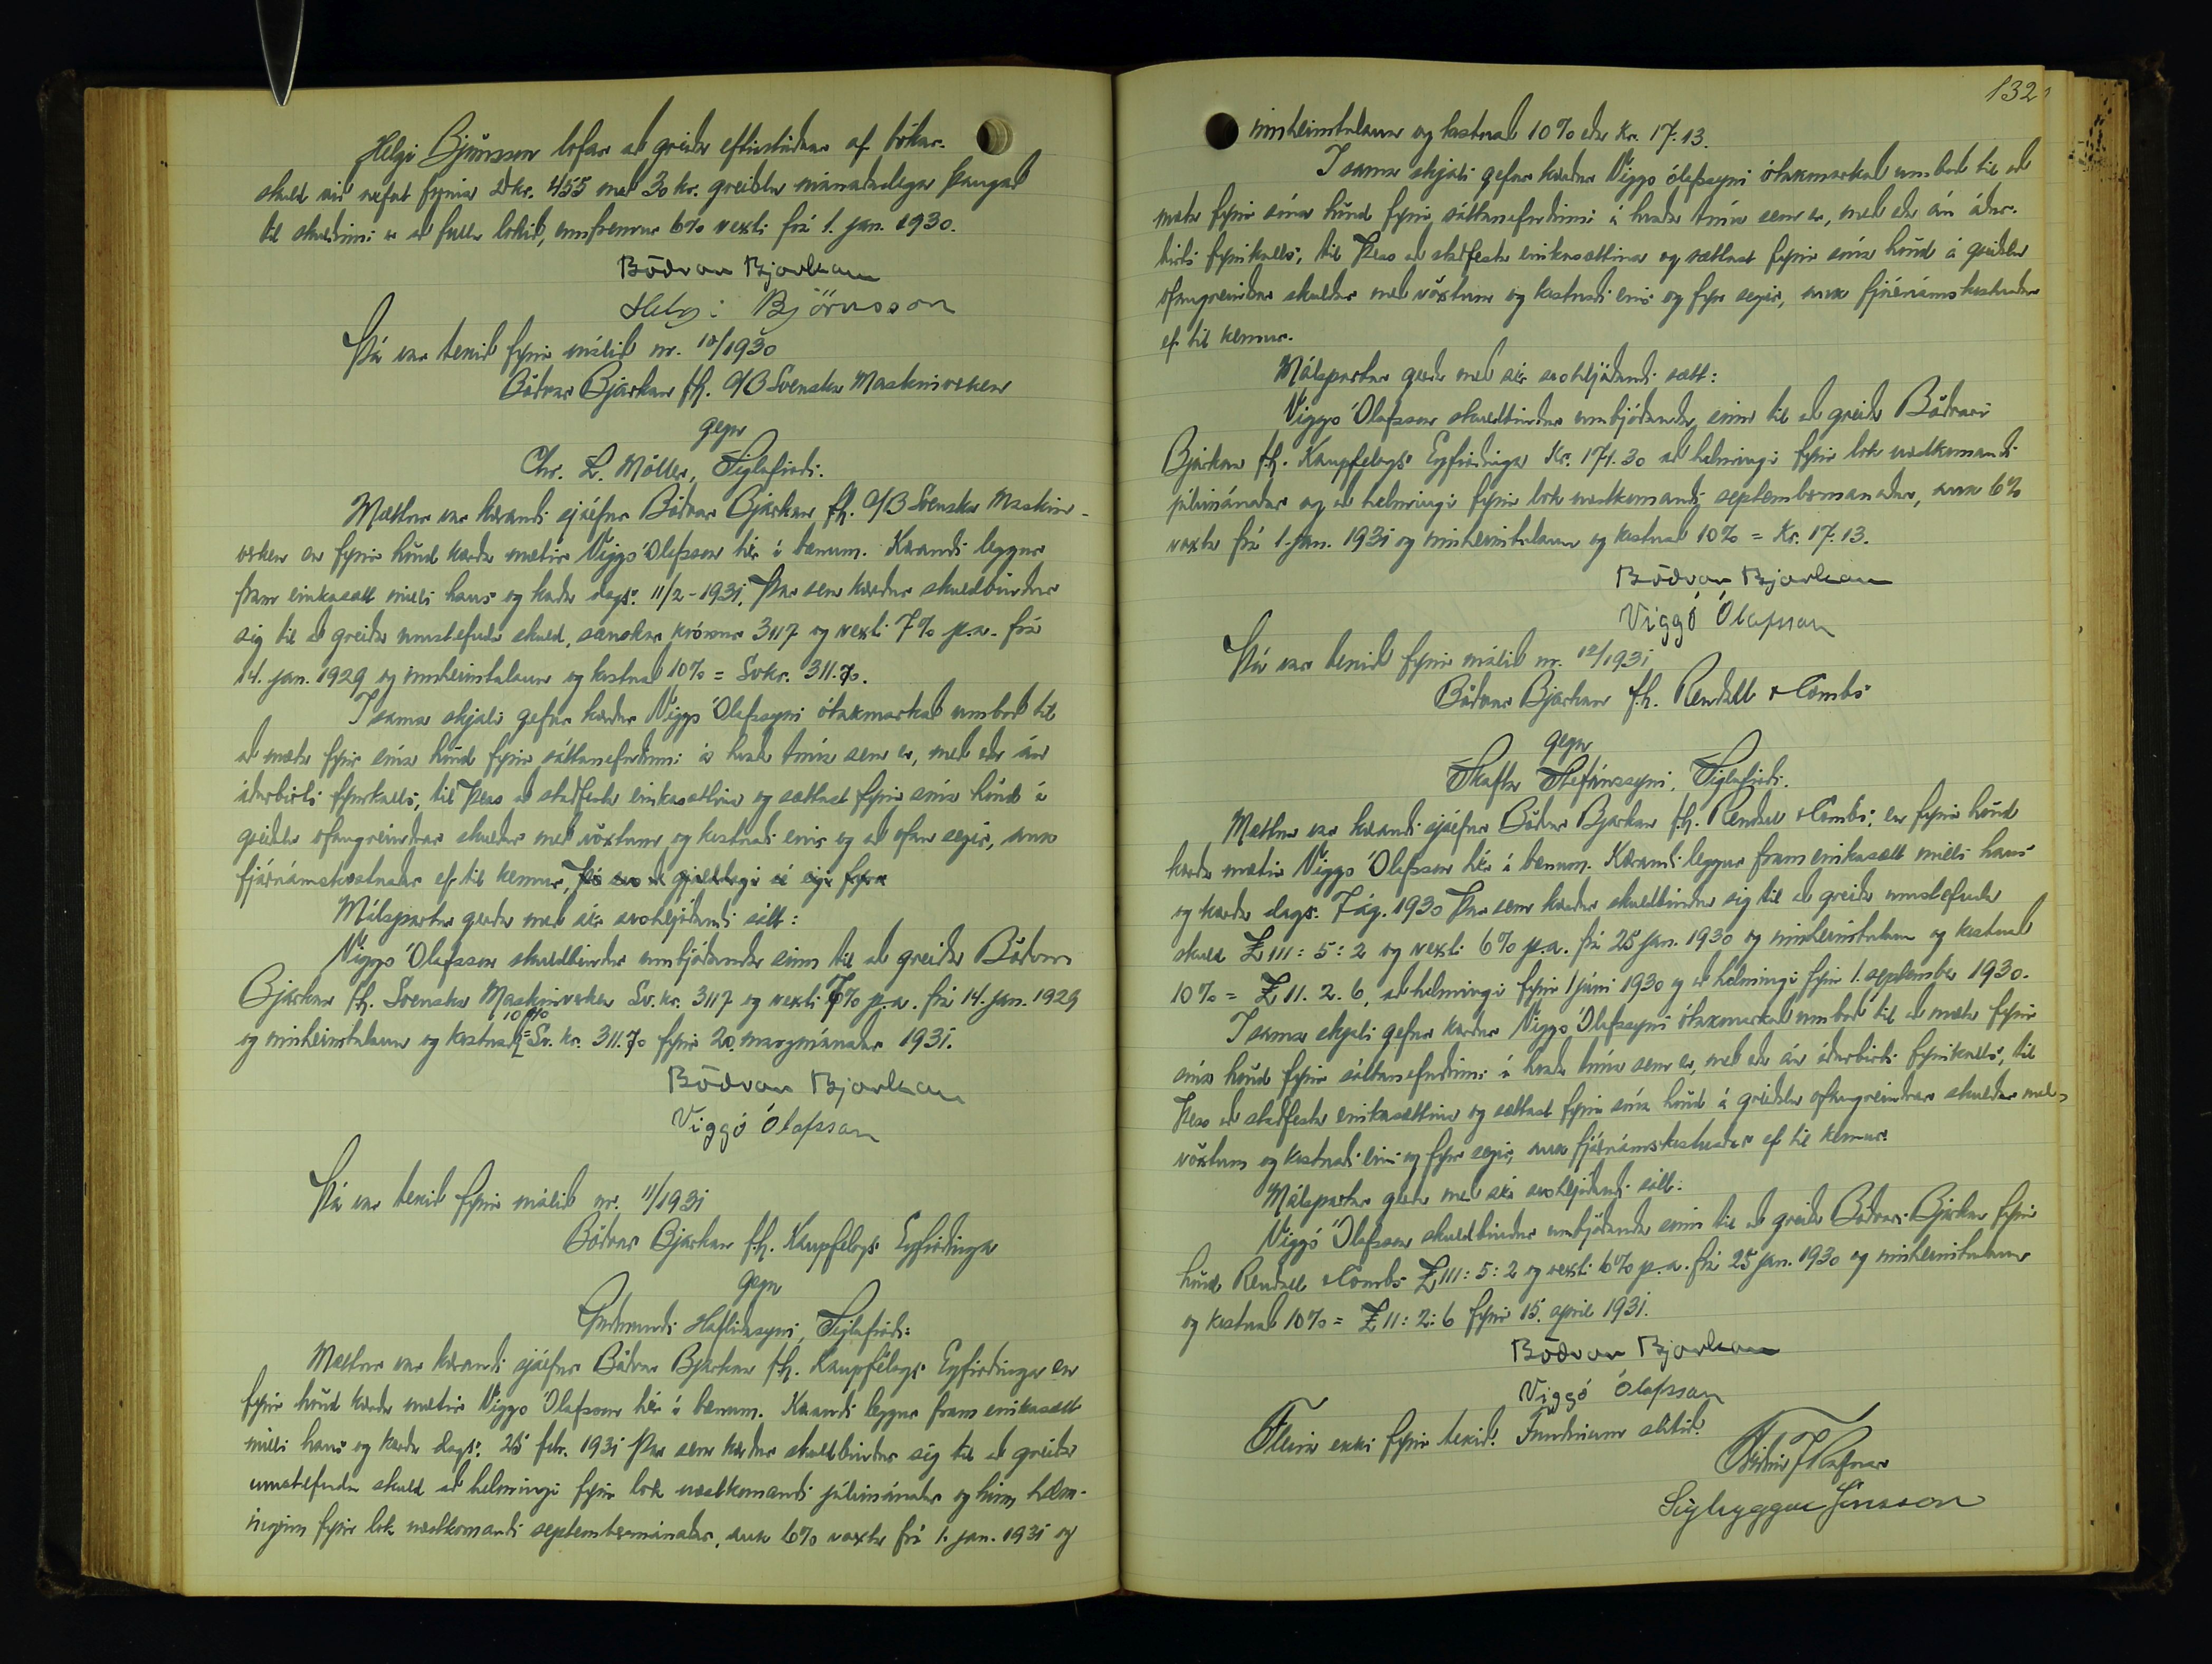 Helgi Björnsson lofar að greiða eftirstöðvar af bókar-
skuld við nefnt fyrir dkr. 455 með 30 kr. greiðslu mánaðarlega þangað
til skuldinni er að fullu lokið, ennfremur 6% vexti frá 1. jan. 1930.
Böðvar Bjarkan
Helgi Björnsson
Þá var tekið fyrir málið nr. 10/1930
Böðvar Bjarkan f.h. A/B Svenska Maskinverken
gegn
Chr. L. Möller, Siglufirði.
Mættur var kærandi sjálfur Böðvar Bjarkan f.h. A/B Svenska Maskin-
verken en fyrir hönd kærða mætir Viggó Ólafsson hér í bænum. Kærandi leggur
fram einkasátt milli hans og kærða dags. 11/2-1931, þar sem kærður skuldbindur
sig til að greiða umstefnda skuld, sænskar krónur 3117 og vexti 7% p.a. frá
14. jan. 1929 og innheimtulaun og kostnað 10% = Svkr. 311.70.
Í sama skjali gefur kærður Viggó Ólafssyni ótakmarkað umboð til
að mæta fyrir sína hönd fyrir sáttanefndinni á hvaða tíma sem er, með eða án
áðurbirts fyrirkalls, til þess að staðfesta einkasáttina og sættast fyrir sína hönd á
greiðslu ofangreindrar skuldar með vöxtum og kostnaði eins og að ofan segir, auk
fjárnámskostnaðar ef til kemur, þó svo að gjalddagi sé eigi fyrr
Málspartar gerðu með sér svohljóðandi sátt:
Viggó Ólafsson skuldbindur umbjóðanda sinn til að greiða Böðvari
Bjarkan f.h. Svenska Maskinverken Sv. kr. 3117 og vexti 7% p.a. frá 14. jan. 1929
og innheimtulaun og kostnað 10% = Sv. kr. 311.70 fyrir 20. marzmánaðar 1931.
Böðvar Bjarkan
Viggó Ólafsson
Þá var tekið fyrir málið nr. 11/1931
Böðvar Bjarkan f.h. Kaupfélags Eyfirðinga
gegn
Guðmundi Hafliðasyni, Siglufirði:
Mættur var kærandi sjálfur Böðvar Bjarkan f.h. Kaupfélags Eyfirðinga en
fyrir hönd kærða mætir Viggó Ólafsson hér í bænum. Kærandi leggur fram einkasátt
milli hans og kærða dags. 25 febr. 1931 þar sem kærður skuldbindur sig til að greiða
umstefnda skuld að helmingi fyrir lok næstkomandi júlímánaðar og hinn helm-
inginn fyrir lok næstkomandi septembermánaðar, auk 6% vaxta frá 1. jan. 1931 og
132
innheimtulaun og kostnað 10% eða Kr. 17.13.
Í sama skjali gefur kærður Viggó Ólafssyni ótakmarkað umboð til að
mæta fyrir sína hönd fyrir sáttanefndinni á hvaða tíma sem er, með eða án áður-
birts fyrirkalls, til þess að staðfesta einkasáttina og sættast fyrir sína hönd á greiðslu
ofangreindrar skuldar með vöxtum og kostnaði eins og fyr segir, auk fjárnámskostnaðar
ef til kemur.
Málspartar gerðu með sér svohljóðandi sátt:
Viggó Ólafsson skuldbindur umbjóðanda sinn til að greiða Böðvari
Bjarkan f.h. Kaupfélags Eyfirðinga Kr. 171.30 að helmingi fyrir lok næstkomandi
júlímánaðar og að helmingi fyrir lok næstkomandi septembermánaðar, auk 6%
vaxta frá 1. jan. 1931 og innheimtulaun og kostnað 10% = Kr. 17.13.
Böðvar Bjarkan
Viggó Ólafsson
Þá var tekið fyrir málið nr. 12/1931
Böðvar Bjarkan f.h. Rendall & Combs
gegn
Skafta Stefánssyni, Siglufirði.
Mættur var kærandi sjálfur Böðvar Bjarkan f.h. Rendall & Combs, en fyrir hönd
kærða mætir Viggó Ólafsson hér í bænum. Kærandi leggur fram einkasátt milli hans
og kærða dags. 7 ág. 1930 þar sem kærður skuldbindur sig til að greiða umstefnda
skuld £ 111:5:2 og vexti 6% p.a. frá 25 jan. 1930 og innheimtulaun og kostnað
10% = £ 11.2.6, að helmingi fyrir 1 júní 1930 og að helmingi fyrir 1. september 1930.
Í sama skjali gefur kærður Viggó Ólafssyni ótakmarkað umboð til að mæta fyrir
sína hönd fyrir sáttanefndinni á hvaða tíma sem er, með eða án áðurbirts fyrirkalls, til
þess að staðfesta einkasáttina og sættast fyrir sína hönd á greiðslu ofangreindrar skuldar með
vöxtum og kostnaði eins og fyr segir, auk fjárnámskostnaðar ef til kemur.
Málspartar gerðu með sér svohljóðandi sátt:
Viggó Ólafsson skuldbindur umbjóðanda sinn til að greiða Böðvari Bjarkan fyrir
hönd Rendall & Combs £ 111:5:2 og vexti 6% p.a. frá 25 jan. 1930 og innheimtulaun
og kostnað 10% = £ 11:2:6 fyrir 15. apríl 1931.
Böðvar Bjarkan
Viggó Ólafsson
Fleira ekki fyrir tekið. Fundinum slitið.
Friðrik J Rafnar
Sigtryggur Jónsson